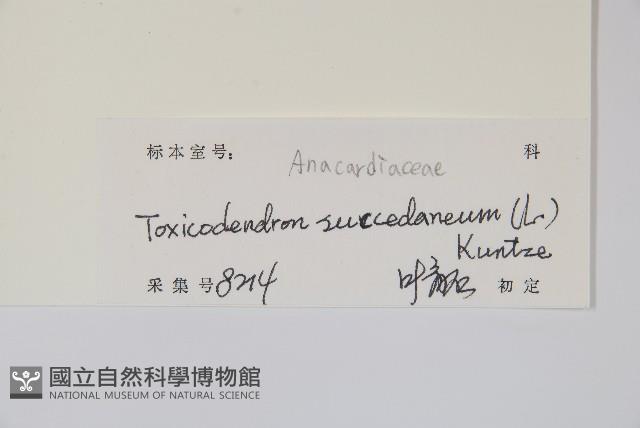 标本室号: Anacardiaceae 科
Toxicodendron succedaneum (L.)
Kuntze
采集号 8214 叶 初定
國立自然科學博物館
NATIONAL MUSEUM OF NATURAL SCIENCE